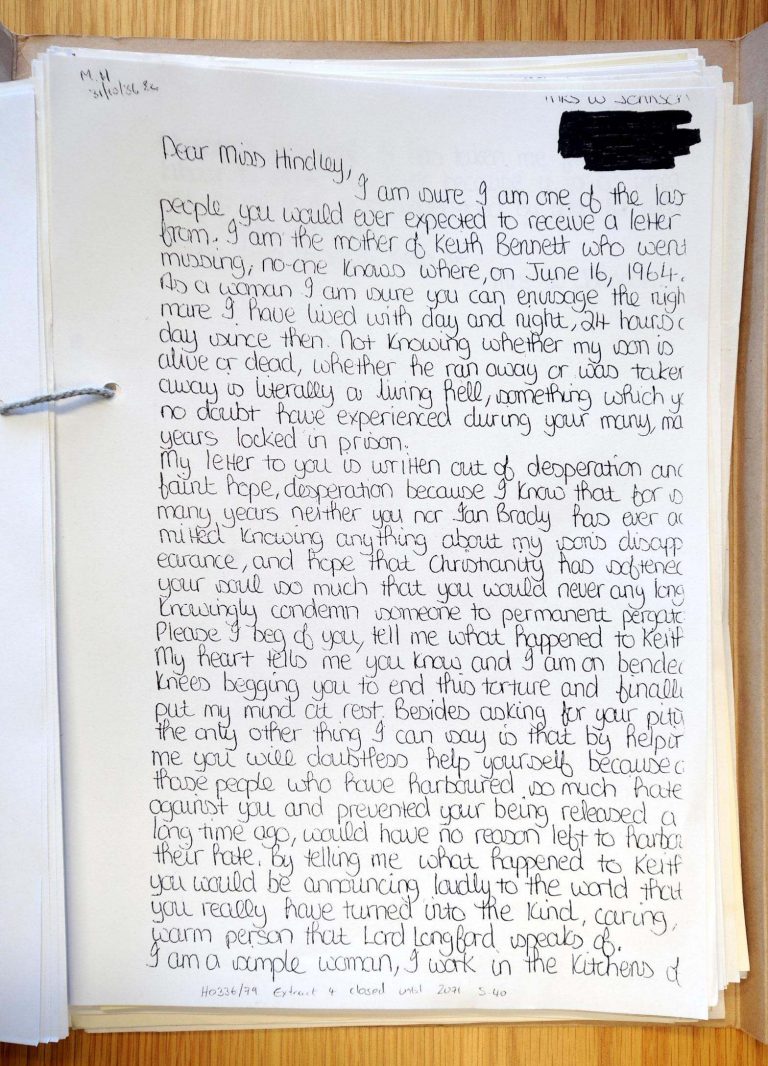 M. H
Mrs W Johnson
Dear Miss Hindley,
I am sure I am one of the las
people you would ever expected to receive a letter
from. I am the mother of Keith Bennett who went
missing, no-one knows where, on June 16, 1964.
As a woman I am sure you can envisage the nigh
mare I have lived with day and night, 24 hours a
day since then. Not knowing whether my son is
alive or dead, whether he ran away or was taken
away is literally a living hell, something which y
no doubt have experienced during your many, ma
years locked in prison.
My letter to you is written out of desperation and
faint hope, desperation because I know that for s
many years neither you nor Ian Brady has ever ad
mitted knowing anything about my son's disapp
earance, and hope that Christianity has softened
your soul so much that you would never any long
knowingly condemn someone to permanent pergato
Please I beg of you, tell me what happened to Keith
My heart tells me you know and I am on bended
knees begging you to end this torture and finall
put my mind at rest. Besides asking for your pity
the only other thing I can say is that by helpin
me you will doubtless help yourself because a
those people who have harboured so much hate
against you and prevented your being released a
long time ago, would have no reason left to harbou
their hate. By telling me what happened to Keith
you would be announcing loudly to the world that
you really have turned into the kind, caring,
warm person that Lord Longford speaks of.
I am a simple woman, I work in the kitchens of
HO336/79 Extract 4 closed until 2071 S.40